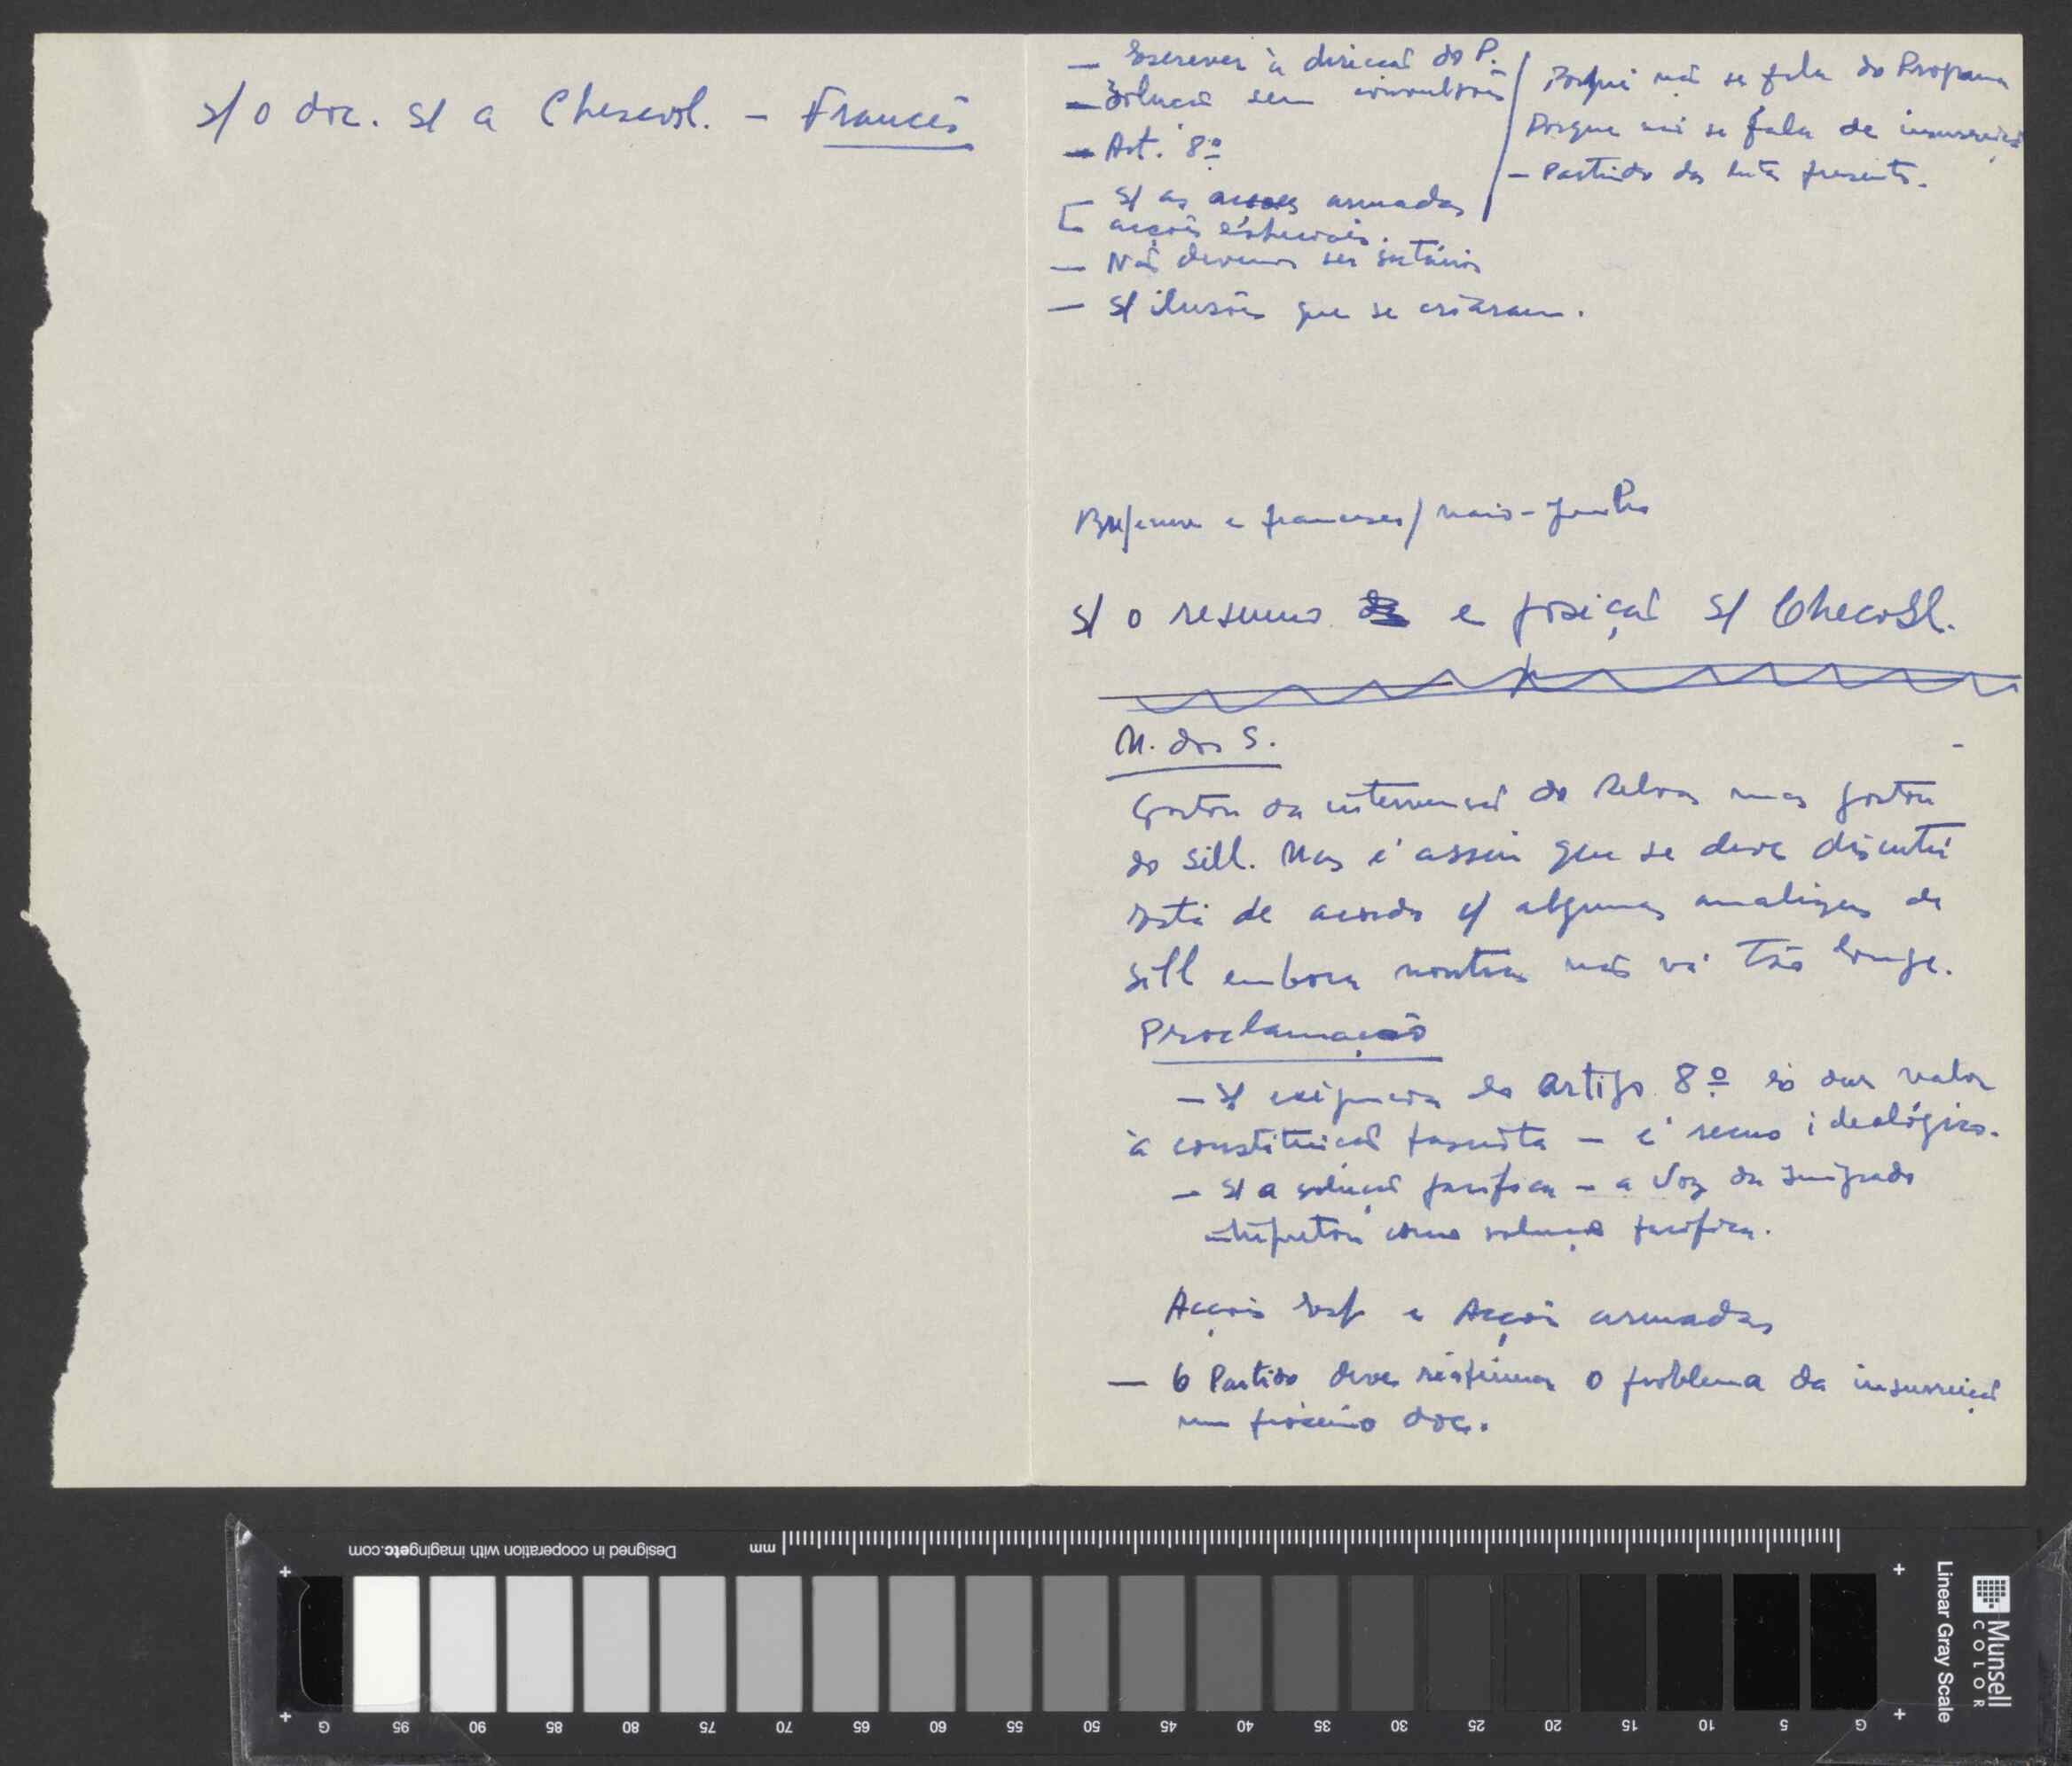 s/ o doc. s/ a Checosl. – Francês
– Escrever à direcção do P.
– Solução sem convulsões
– Art. 8º
– s/ as acções armadas
acções especiais.
– Não devemos ser sectários
– s/ ilusões que se criaram.
Porquê não se fala do Programa
Porque não se fala de insurreição
– Partido da luta presente.
e franceses / maio-Junho
s/ o resumo e posição s/ Checosl.
M. dos S.
Gostou da intervenção do Relvas mas gostou
do Sill. Mas é assim que se deve discutir
Está de acordo c/ algumas analises de
Sill embora noutras não vá tão longe.
Proclamação
– s/ exigencia do Artigo 8º só dar valor
à constituição fascista – é recuo ideológico.
– s/ a solução pacifica – a Voz da Imigrado
interpretou como solução pacifica.
Acções Esp e Acções armadas
– O Partido deve reafirmar o problema da insurreição
num próximo doc.
Designed in cooperation with imagingetc.com
mm
G 95 90 85 80 75 70 65 60 55 50 45 40 35 30 25 20 15 10 5 G
Munsell
COLOR
Linear Gray Scale